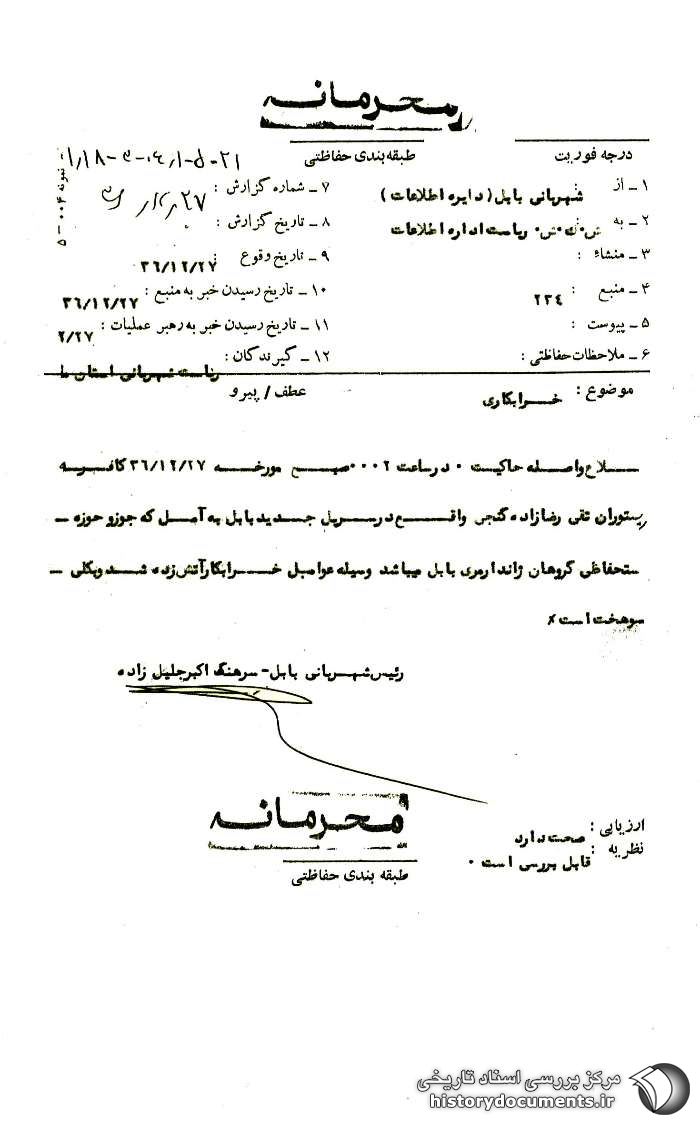 محرمانه
درجه فوریت
طبقه‌بندی حفاظتی
۱ـ از : شهربانی بابل (دایره اطلاعات)
۲ـ به : ش.ک.ش. ریاست اداره اطلاعات
۳ـ منشاء :
۴ـ منبع : ۲۳۴
۵ـ پیوست :
۶ـ ملاحظات حفاظتی :
۷ـ شماره گزارش :
۸ـ تاریخ گزارش :
۹ـ تاریخ وقوع : ۳۶/۱۲/۲۷
۱۰ـ تاریخ رسیدن خبر به منبع : ۳۶/۱۲/۲۷
۱۱ـ تاریخ رسیدن خبر به رهبر عملیات : ۲/۲۷
۱۲ـ گیرندگان :
ریاست شهربانی استان ما
نمونه ۰۰۴ـ۵
موضوع : خرابکاری
عطف / پیرو
ـلاع واصله حاکیست ۰ در ساعت ۰۰۰۲ صبح مورخه ۳۶/۱۲/۲۷ کافه
رستوران تقی رضازاده گنجی واقع در سرپل جدید بابل به آمل که جوزو حوزه ـ
ستحفاظی گروهان ژاندارمری بابل میباشد وسیله عوامل خرابکار آتش زده شد و بکلی ـ
سوهخت است ٪
رئیس شهربانی بابل ـ سرهنگ اکبر جلیل زاده
محرمانه
طبقه بندی حفاظتی
ارزیابی : صحت دارد
نظریه : قابل بررسی است ۰
مرکز بررسی اسناد تاریخی
historydocuments.ir